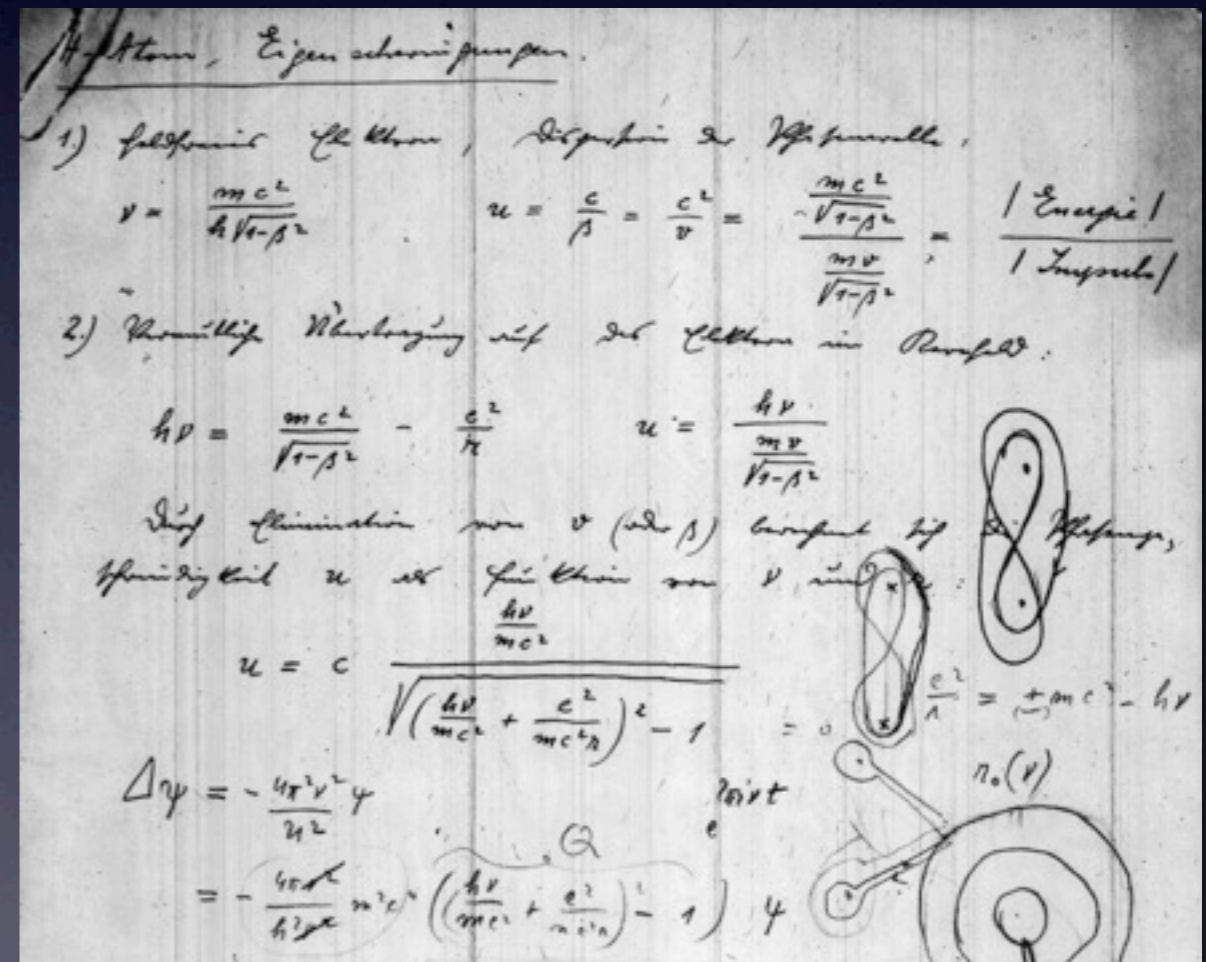 H-Atom, Eigenschwingungen.
1.) Feldfreies Elektron, Dispersion der Phasenwelle.
ν = mc² / (h√(1-β²))   u = c/β = c²/v = (mc²/√(1-β²)) / (mv/√(1-β²)) = |Energie| / |Impuls|
2.) Vermutliche Übertragung auf das Elektron im Kernfeld:
hν = mc²/√(1-β²) - e²/r   u = hν / (mv/√(1-β²))
Durch Elimination von v (oder β) berechnet sich die Phasenge-
schwindigkeit u als Funktion von ν und
u = c (hν/mc²) / √((hν/mc² + e²/mc²r)² - 1)   = 0   e²/r = ± mc² - hν
r₀(ν)
Δψ = - 4π²ν²/u² ψ   e^2πiνt
Q
= - 4π²/h² m²c² ((hν/mc² + e²/mc²r)² - 1) ψ